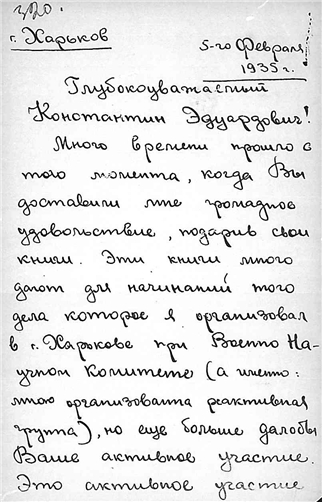 г. Харьков
5-го Февраля
1935 г.
Глубокоуважаемый
Константин Эдуардович!
Много времени прошло с
того момента, когда Вы
доставили мне громадное
удовольствие, подарив свои
книги. Эти книги много
дают для начинаний того
дела которое я организовал
в г. Харькове при Военно На-
учном Комитете (а имено:
мною организованна реактивная
група), но еще больше дало бы
Ваше активное участие.
Это активное участие